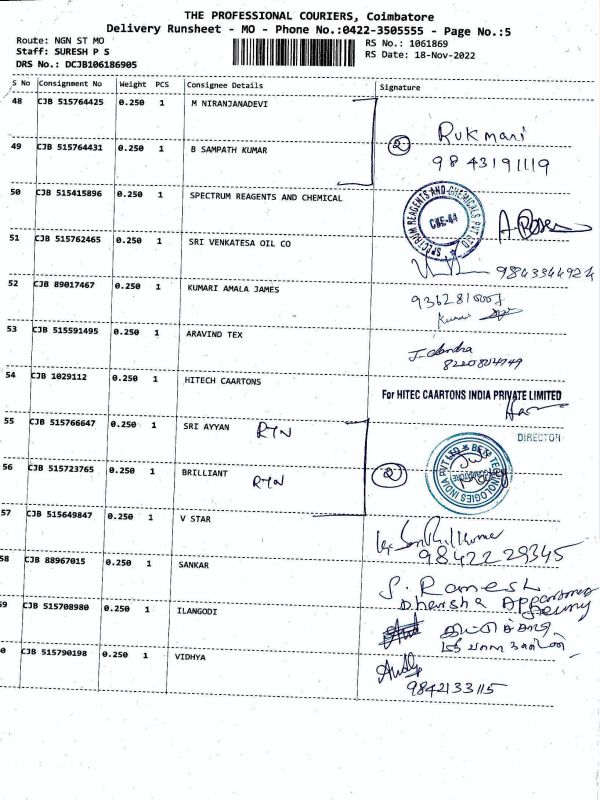 THE PROFESSIONAL COURIERS, Coimbatore
Delivery Runsheet - MO - Phone No.:0422-3505555 - Page No.:5
Route: NGN ST MO
RS No.: 1061869
Staff: SURESH P S
RS Date: 18-Nov-2022
DRS No.: DCJB106186905
S No Consignment No Weight PCS Consignee Details Signature
48 CJB 515764425 0.250 1 M NIRANJANADEVI
2 Rukmani
49 CJB 515764431 0.250 1 B SAMPATH KUMAR
98 43191119
50 CJB 515415896 0.250 1 SPECTRUM REAGENTS AND CHEMICAL
SPECTRUM REAGENTS AND CHEMICALS PVT LTD
51 CJB 515762465 0.250 1 SRI VENKATESA OIL CO
9843344924
52 CJB 89017467 0.250 1 KUMARI AMALA JAMES
53 CJB 515591495 0.250 1 ARAVIND TEX
54 CJB 1029112 0.250 1 HITECH CAARTONS
For HITEC CAARTONS INDIA PRIVATE LIMITED
DIRECTOR
55 CJB 515766647 0.250 1 SRI AYYAN RTN
56 CJB 515723765 0.250 1 BRILLIANT RTN
2
TECHNOLOGIES INDIA PVT LTD
57 CJB 515649847 0.250 1 V STAR
98422 29345
58 CJB 88967015 0.250 1 SANKAR
S. Ramesh
59 CJB 515708980 0.250 1 ILANGODI
0 CJB 515790198 0.250 1 VIDHYA
9842133115